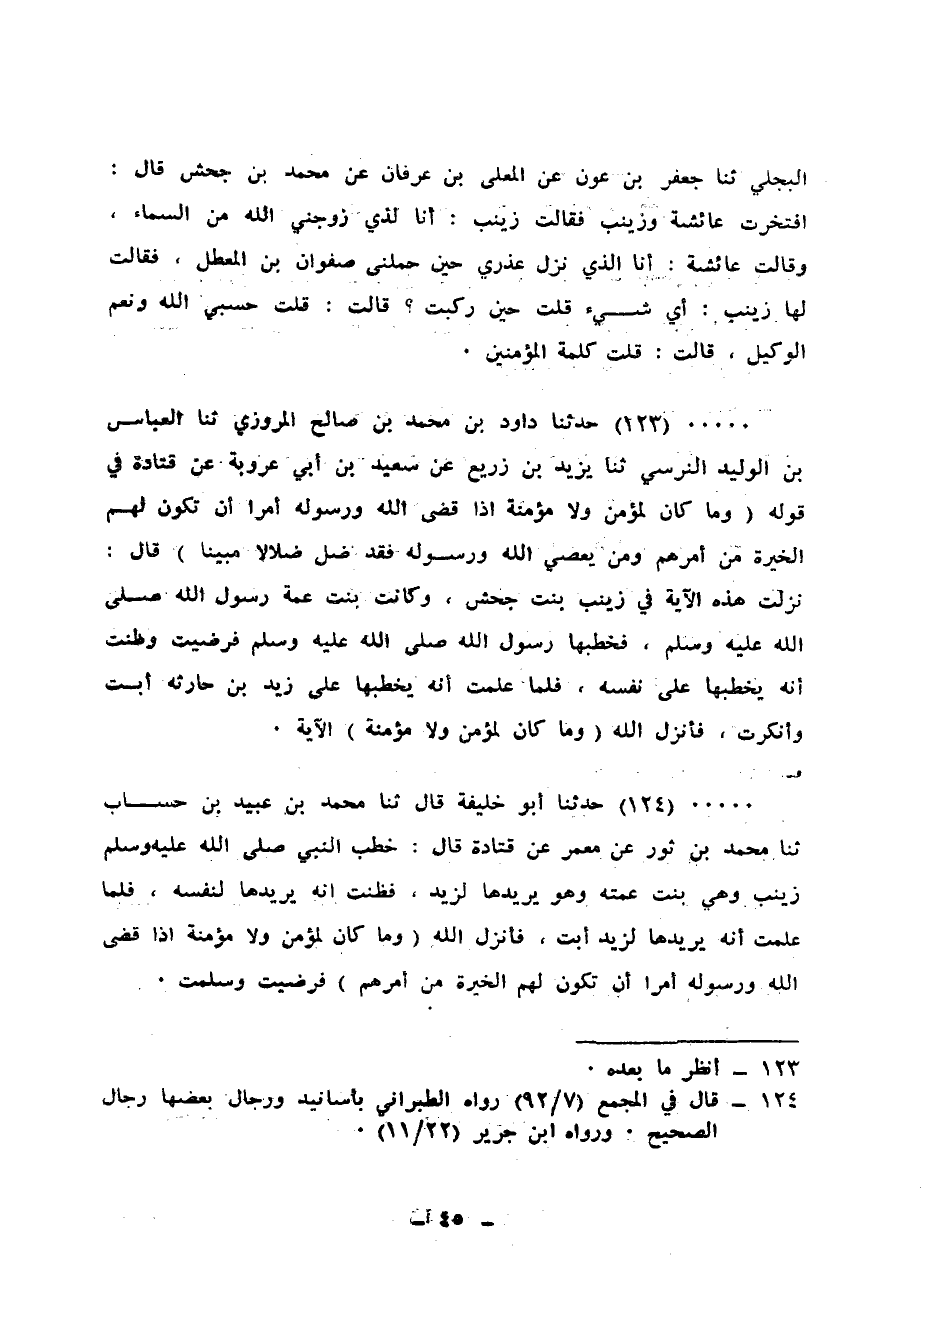 البجلي ثنا جعفر بن عون عن المعلى بن عرفان عن محمد بن جحش قال :
افتخرت عائشة وزينب فقالت زينب : أنا لذي زوجني الله من السماء ،
وقالت عائشة : أنا الذي نزل عذري حين حملنى صفوان بن المعطل ، فقالت
لها زينب : أي شــــيء قلت حين ركبت ؟ قالت : قلت حسبي الله ونعم
الوكيل ، قالت : قلت كلمة المؤمنين ٠
٠٠٠٠٠ (١٢٣) حدثنا داود بن محمد بن صالح المروزي ثنا العباس
بن الوليد النرسي ثنا يزيد بن زريع عن سعيد بن أبي عروبة عن قتادة في
قوله ( وما كان لمؤمن ولا مؤمنة اذا قضى الله ورسوله أمرا أن تكون لهــم
الخيرة من أمرهم ومن يعصي الله ورســوله فقد ضل ضلالا مبينا ) قال :
نزلت هذه الآية في زينب بنت جحش ، وكانت بنت عمة رسول الله صــلى
الله عليه وسلم ، فخطبها رسول الله صلى الله عليه وسلم فرضيت وظنت
أنه يخطبها على نفسه ، فلما علمت أنه يخطبها على زيد بن حارثه أبــت
وأنكرت ، فأنزل الله ( وما كان لمؤمن ولا مؤمنة ) الآية ٠
٠٠٠٠٠ (١٢٤) حدثنا أبو خليفة قال ثنا محمد بن عبيد بن حســـاب
ثنا محمد بن ثور عن معمر عن قتادة قال : خطب النبي صلى الله عليهوسلم
زينب وهي بنت عمته وهو يريدها لزيد ، فظنت انه يريدها لنفسه ، فلما
علمت أنه يريدها لزيد أبت ، فأنزل الله ( وما كان لمؤمن ولا مؤمنة اذا قضى
الله ورسوله أمرا أن تكون لهم الخيرة من أمرهم ) فرضيت وسلمت ٠
١٢٣ ــ أنظر ما بعده ٠
١٢٤ ــ قال في المجمع (٩٢/٧) رواه الطبراني بأسانيد ورجال بعضها رجال
الصحيح ٠ ورواه ابن جرير (١١/٢٢) ٠
ــ ٤٥ ــ